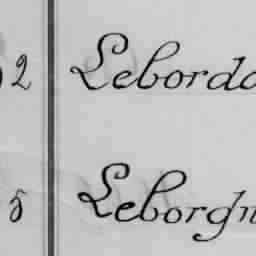 2 Leborda
5 Leborgn